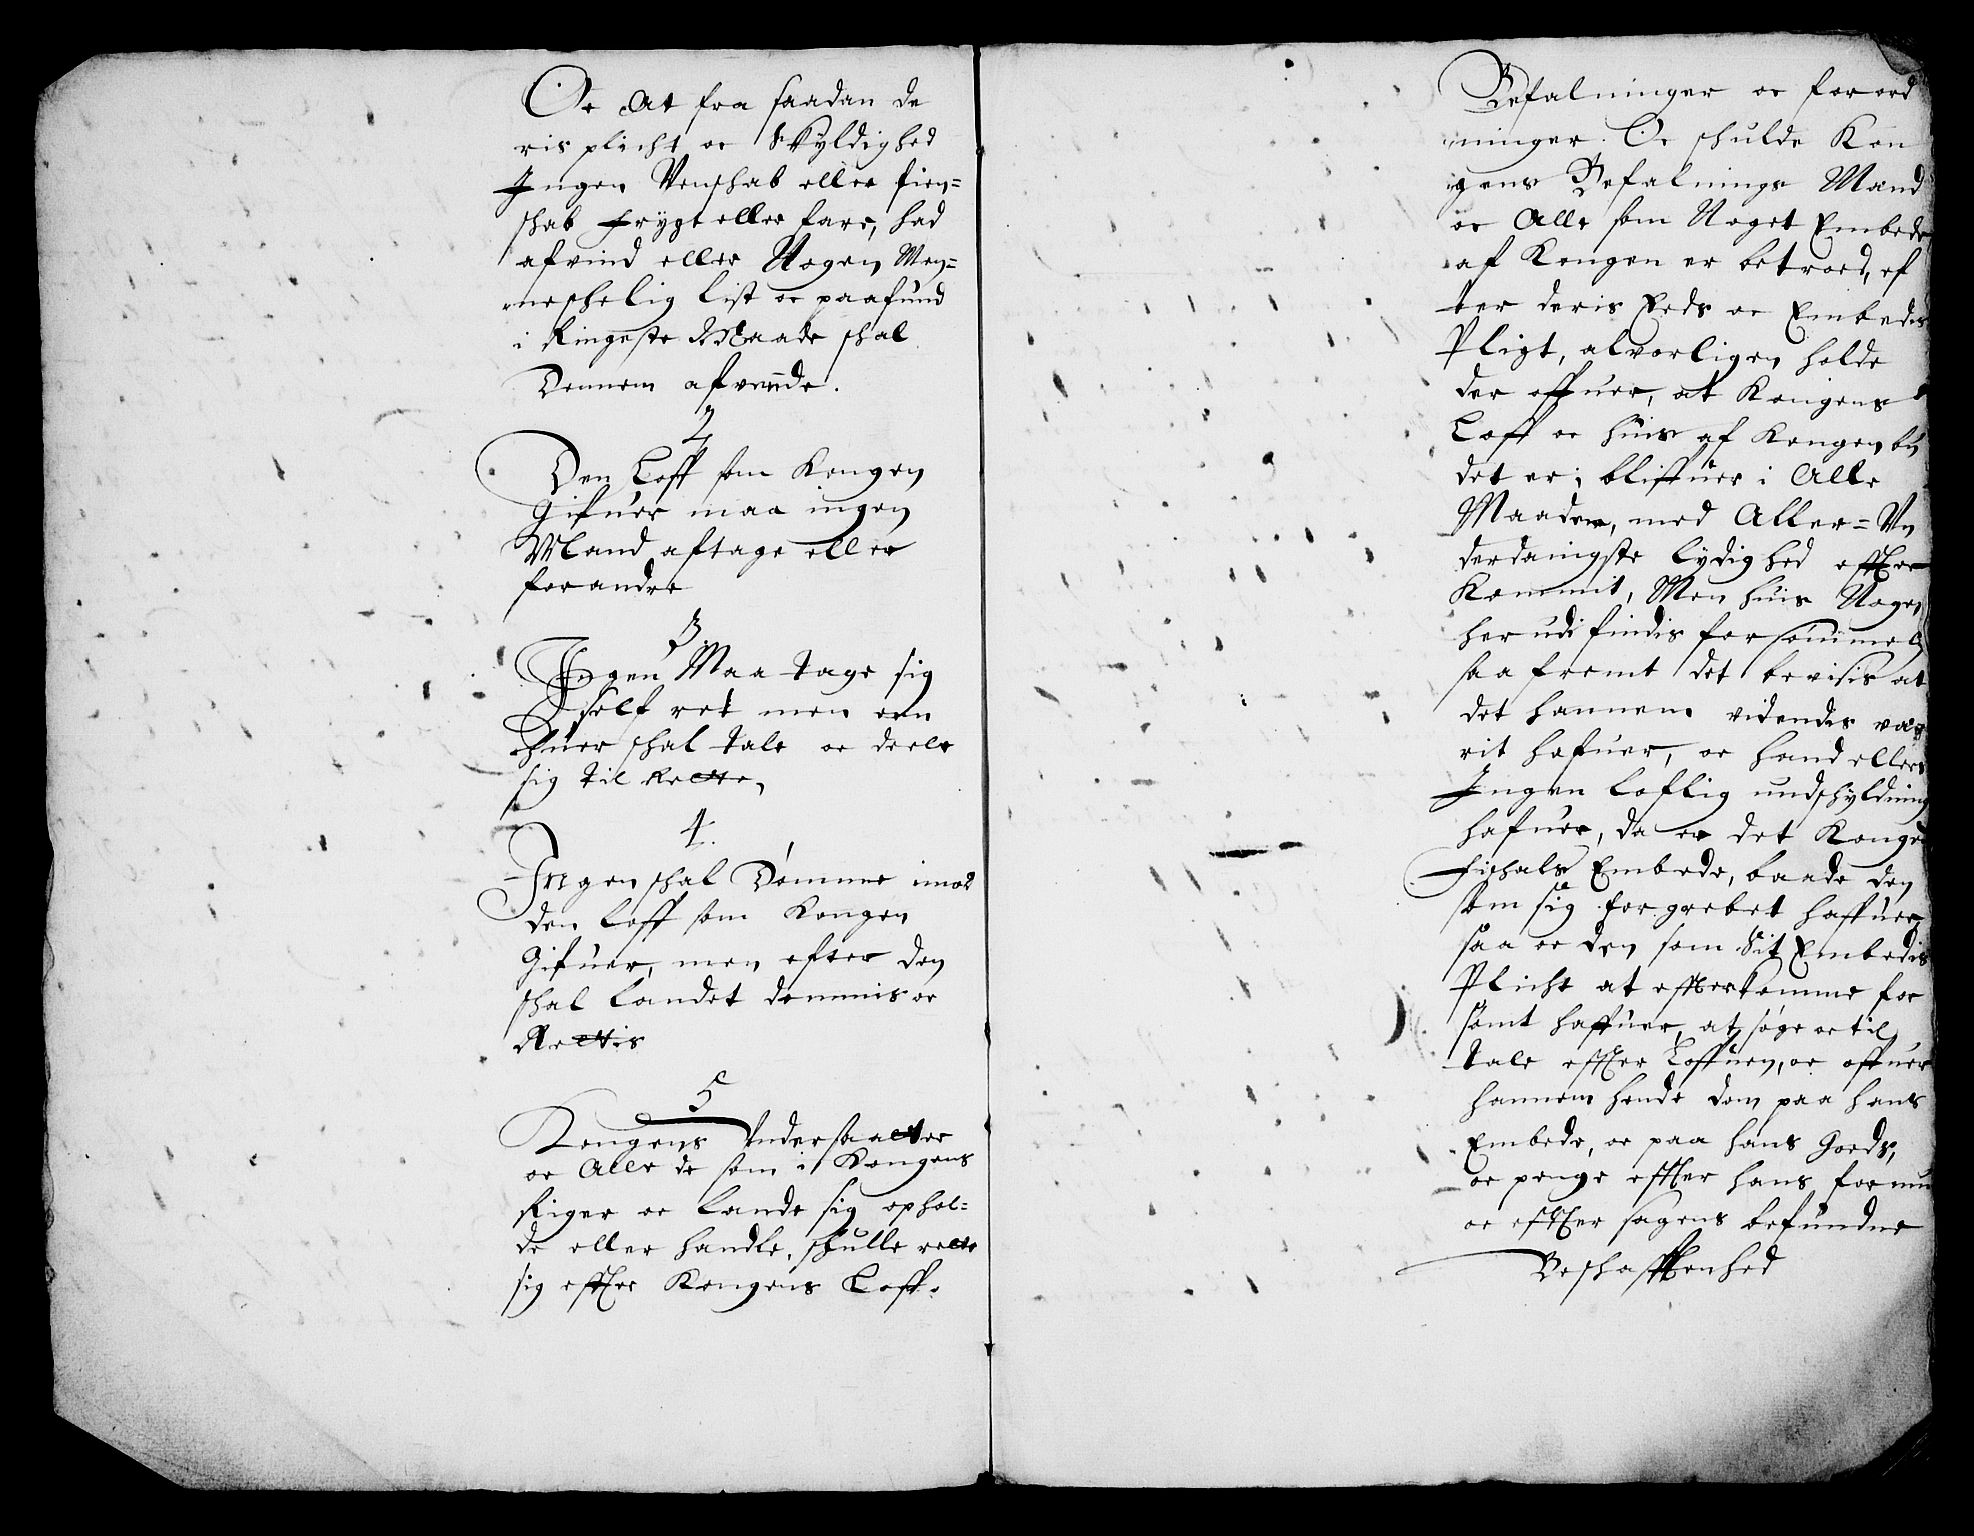 Oc At fra saadan de
ris plicht oc Skyldighed
Ingen Venschab eller fien=
schab frygt eller fare, had
afvind eller Nogen Men=
neschelig list oc paafund
i Ringeste Maade schal
Dennem afvende.
2
Den Loff som Kongen
Gifuer maa ingen
Mand aftage eller
forandre
3.
Ingen Maa tage sig
self ret men een
huer schal tale oc deele
sig til Rette,
4.
Ingen schal Dømme imod
den loff som Kongen
Gifuer, men efter den
schal landet dømmis oc
Rettis
5
Kongens Undersaatter
oc Alle de som i Kongens
Riger oc lande sig ophol=
de eller handle, skulle rette
sig effter Kongens Loff.
Befalninger oc forord
ninger. Oc schulde Kon
gens Befalnings Mand
oc Alle som Noget Embede
af Kongen er betroed, ef
ter deris Eeds oc Embedis
Pligt, alvorligen holde
der offuer, at Kongens
Loff oc huis af Kongen bu
det er, bliffuer i Alle
Maader, med Aller=Un
derdanigste lydighed effter
Kommit, Men huis Nogen
her udi findis forsømmelig
saa fremt det bevisis at
det hannem videndis væ
rit hafuer, oc hand ellers
Ingen loflig undschyldning
hafuer, da er det Konge
Fischals Embede, baade den
som sig forgrebet haffuer
saa oc den som Sit Embedis
Plicht at effterkomme for
sømt haffuer, at søge oc til
tale effter Loffuen, oc offuer
hannem hende dom paa hans
Embede, oc paa hans Goeds,
oc penge effter hans formu
oc effter sagens befundne
Beschaffenhed